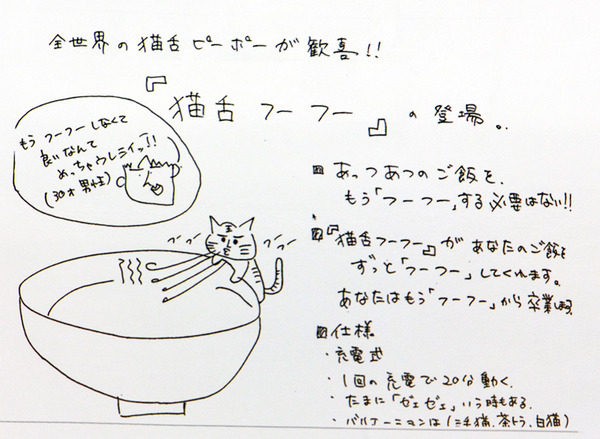 全世界の猫舌ピーポーが歓喜!!
『猫舌フーフー』の登場。
もうフーフーしなくて
良いなんて
めっちゃウレシイッ!!
(30才男性)
あっつあつのご飯を、
もう「フーフー」する必要はない!!
『猫舌フーフー』があなたのご飯を
ずっと「フーフー」してくれます。
あなたはもう「フーフー」から卒業しよう
フーフー
フーフー
仕様
・充電式
・1回の充電で20分動く。
・たまに「ゼェゼェ」いう時もある。
・バリエーションは(三毛猫、茶トラ、白猫)